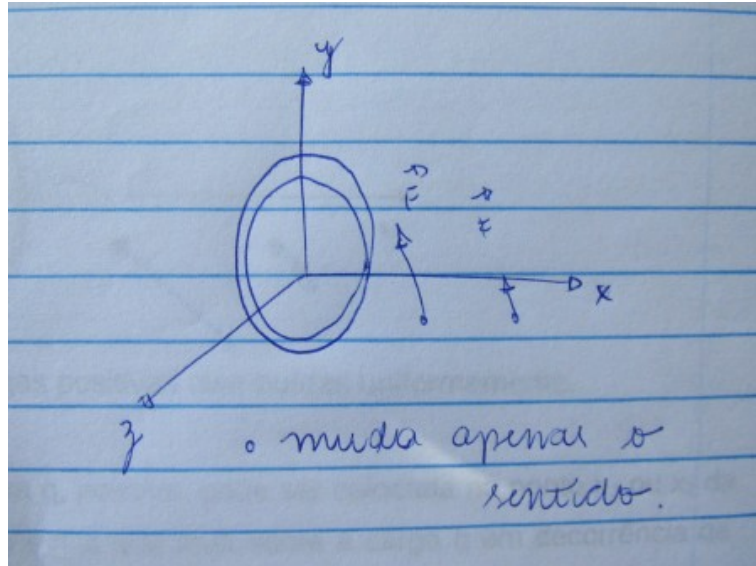 y
F
F
x
z
• muda apenas o
sentido.